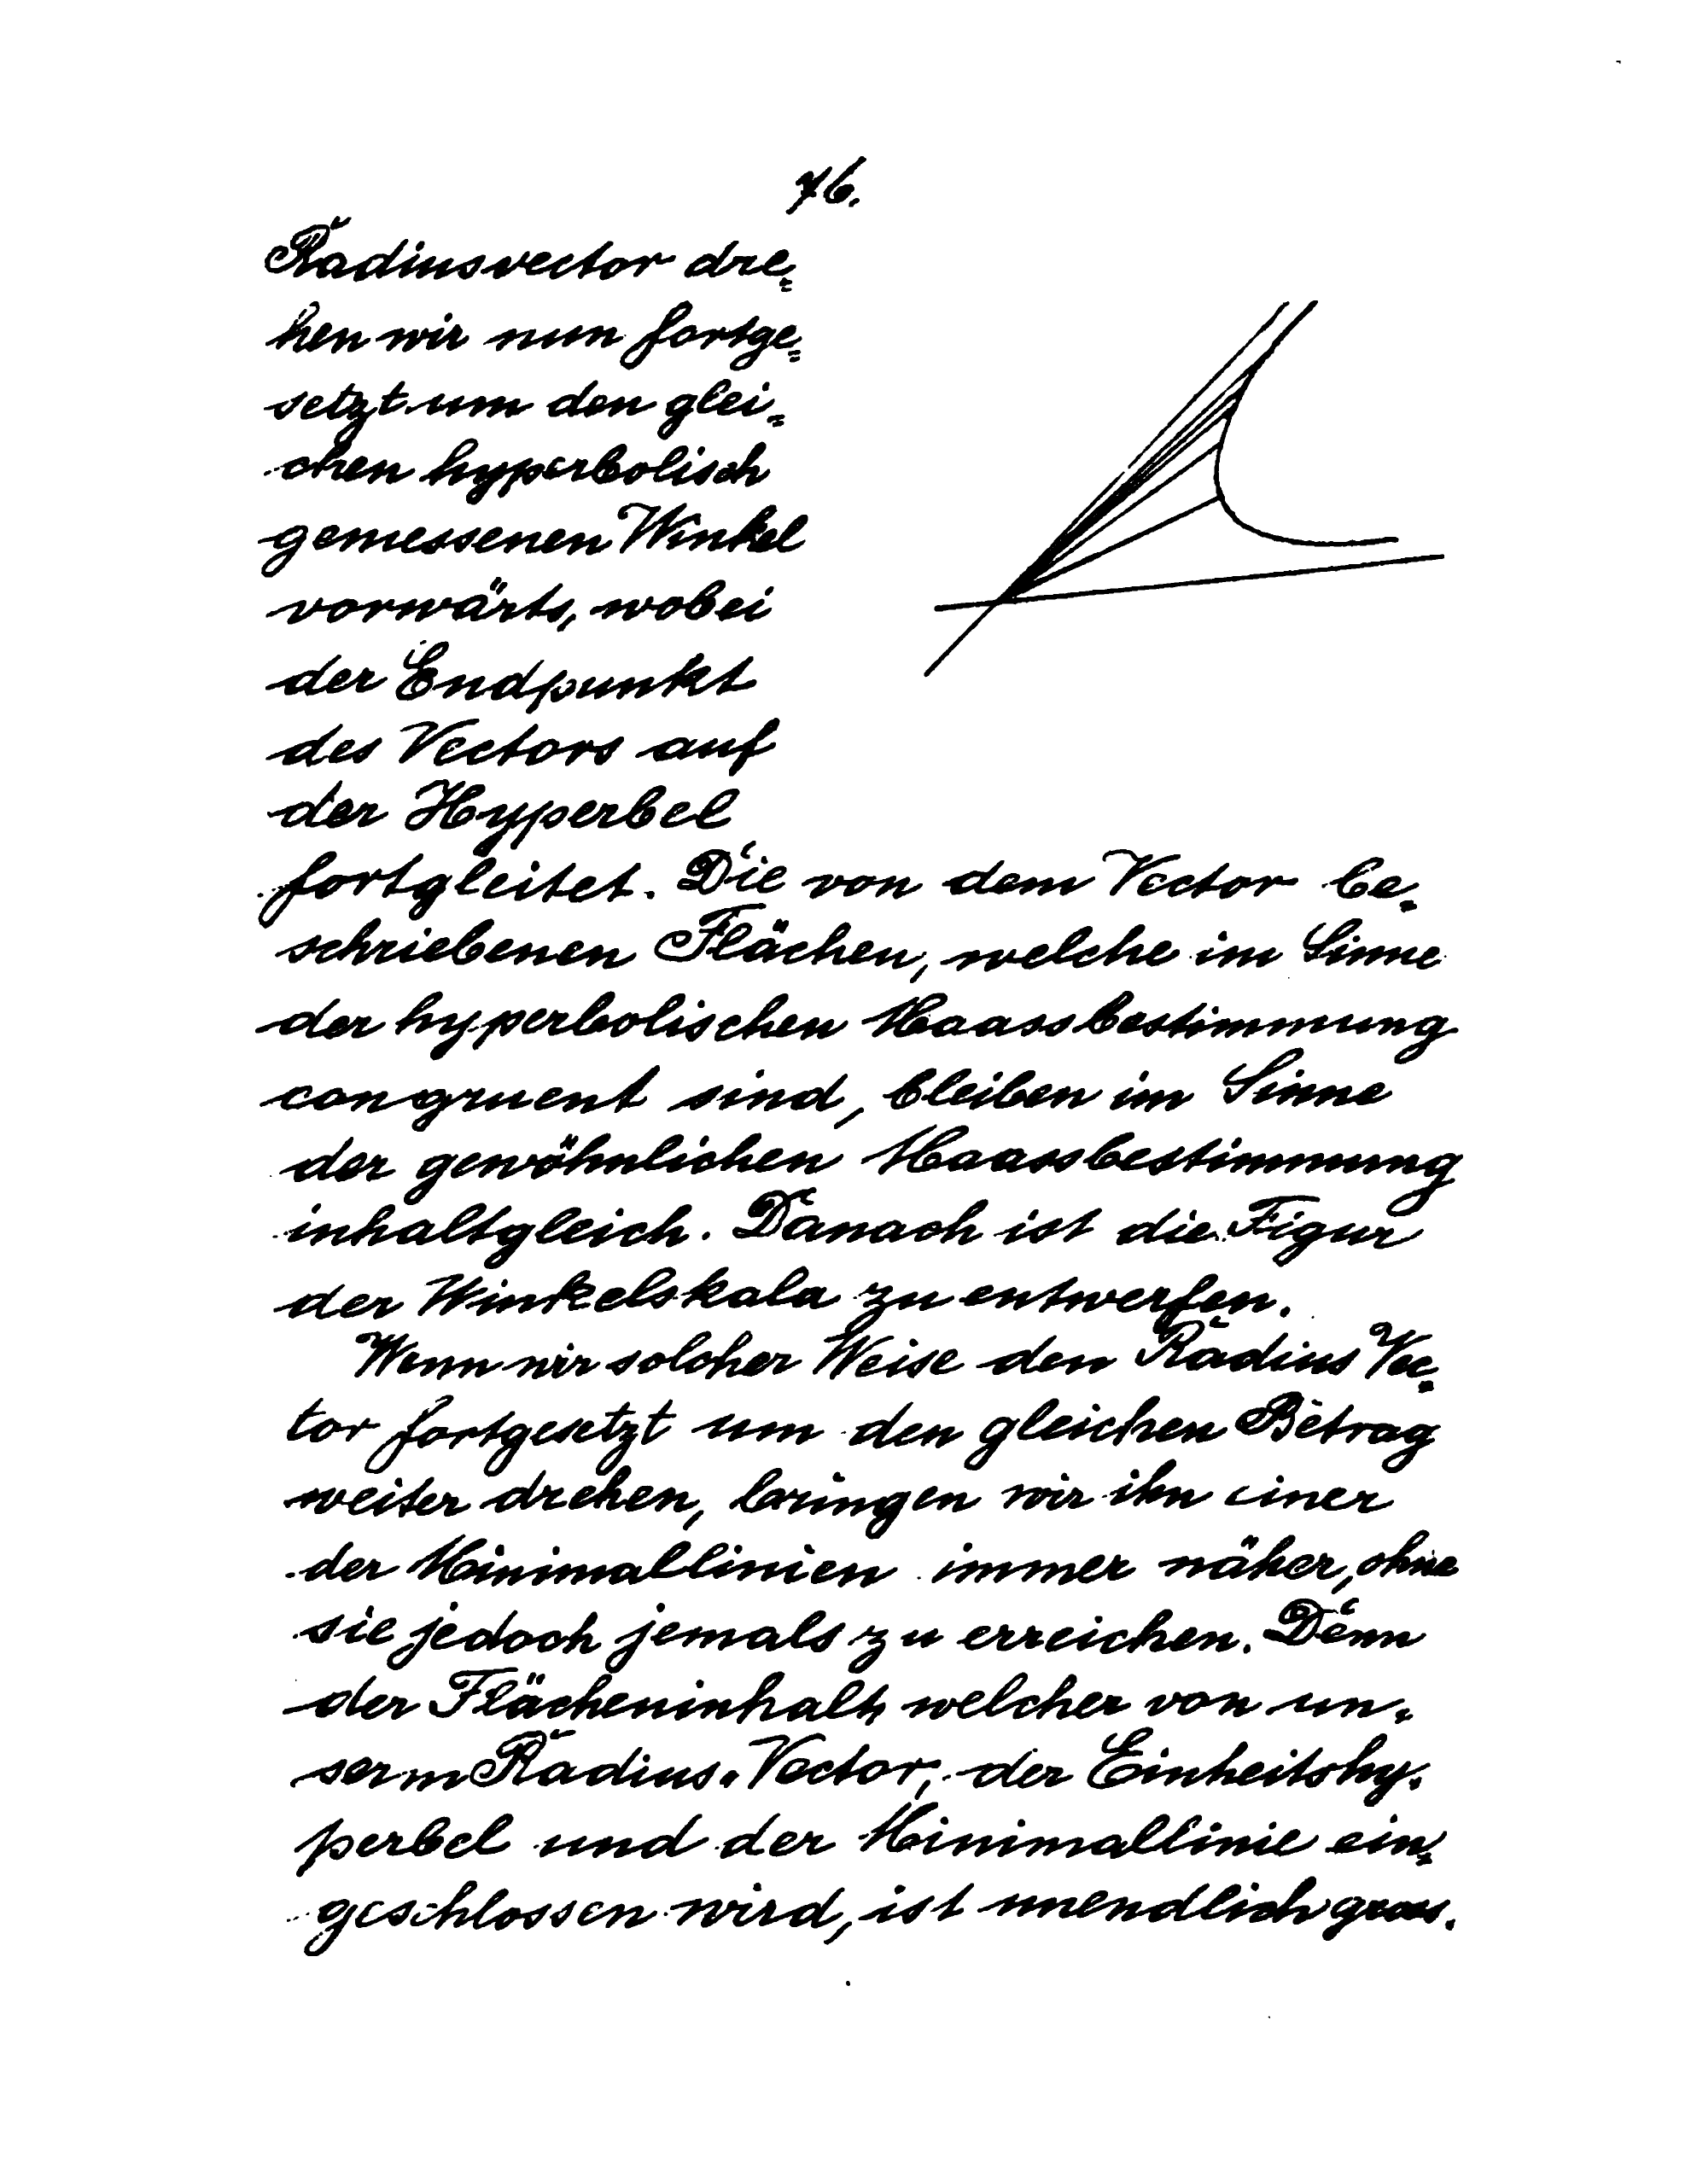 76.
Radiusvector dre-
hen wir nun fortge-
setzt um den glei-
chen hyperbolisch
gemessenen Winkel
vorwärts, wobei
der Endpunkt
des Vectors auf
der Hyperbel
fortgleitet. Die von dem Vector be-
schriebenen Flächen, welche im Sinne
der hyperbolischen Maassbestimmung
congruent sind, bleiben im Sinne
der gewöhnlichen Maassbestimmung
inhaltgleich. Danach ist die Figur
der Winkelskala zu entwerfen.
Wenn wir solcher Weise den Radius Vec-
tor fortgesetzt um den gleichen Betrag
weiter drehen, bringen wir ihn einer
der Minimallinien immer näher, ohne
sie jedoch jemals zu erreichen. Denn
der Flächeninhalt, welcher von un-
serm Radius-Vector, der Einheitshy-
perbel und der Minimallinie ein-
geschlossen wird, ist unendlich gross.